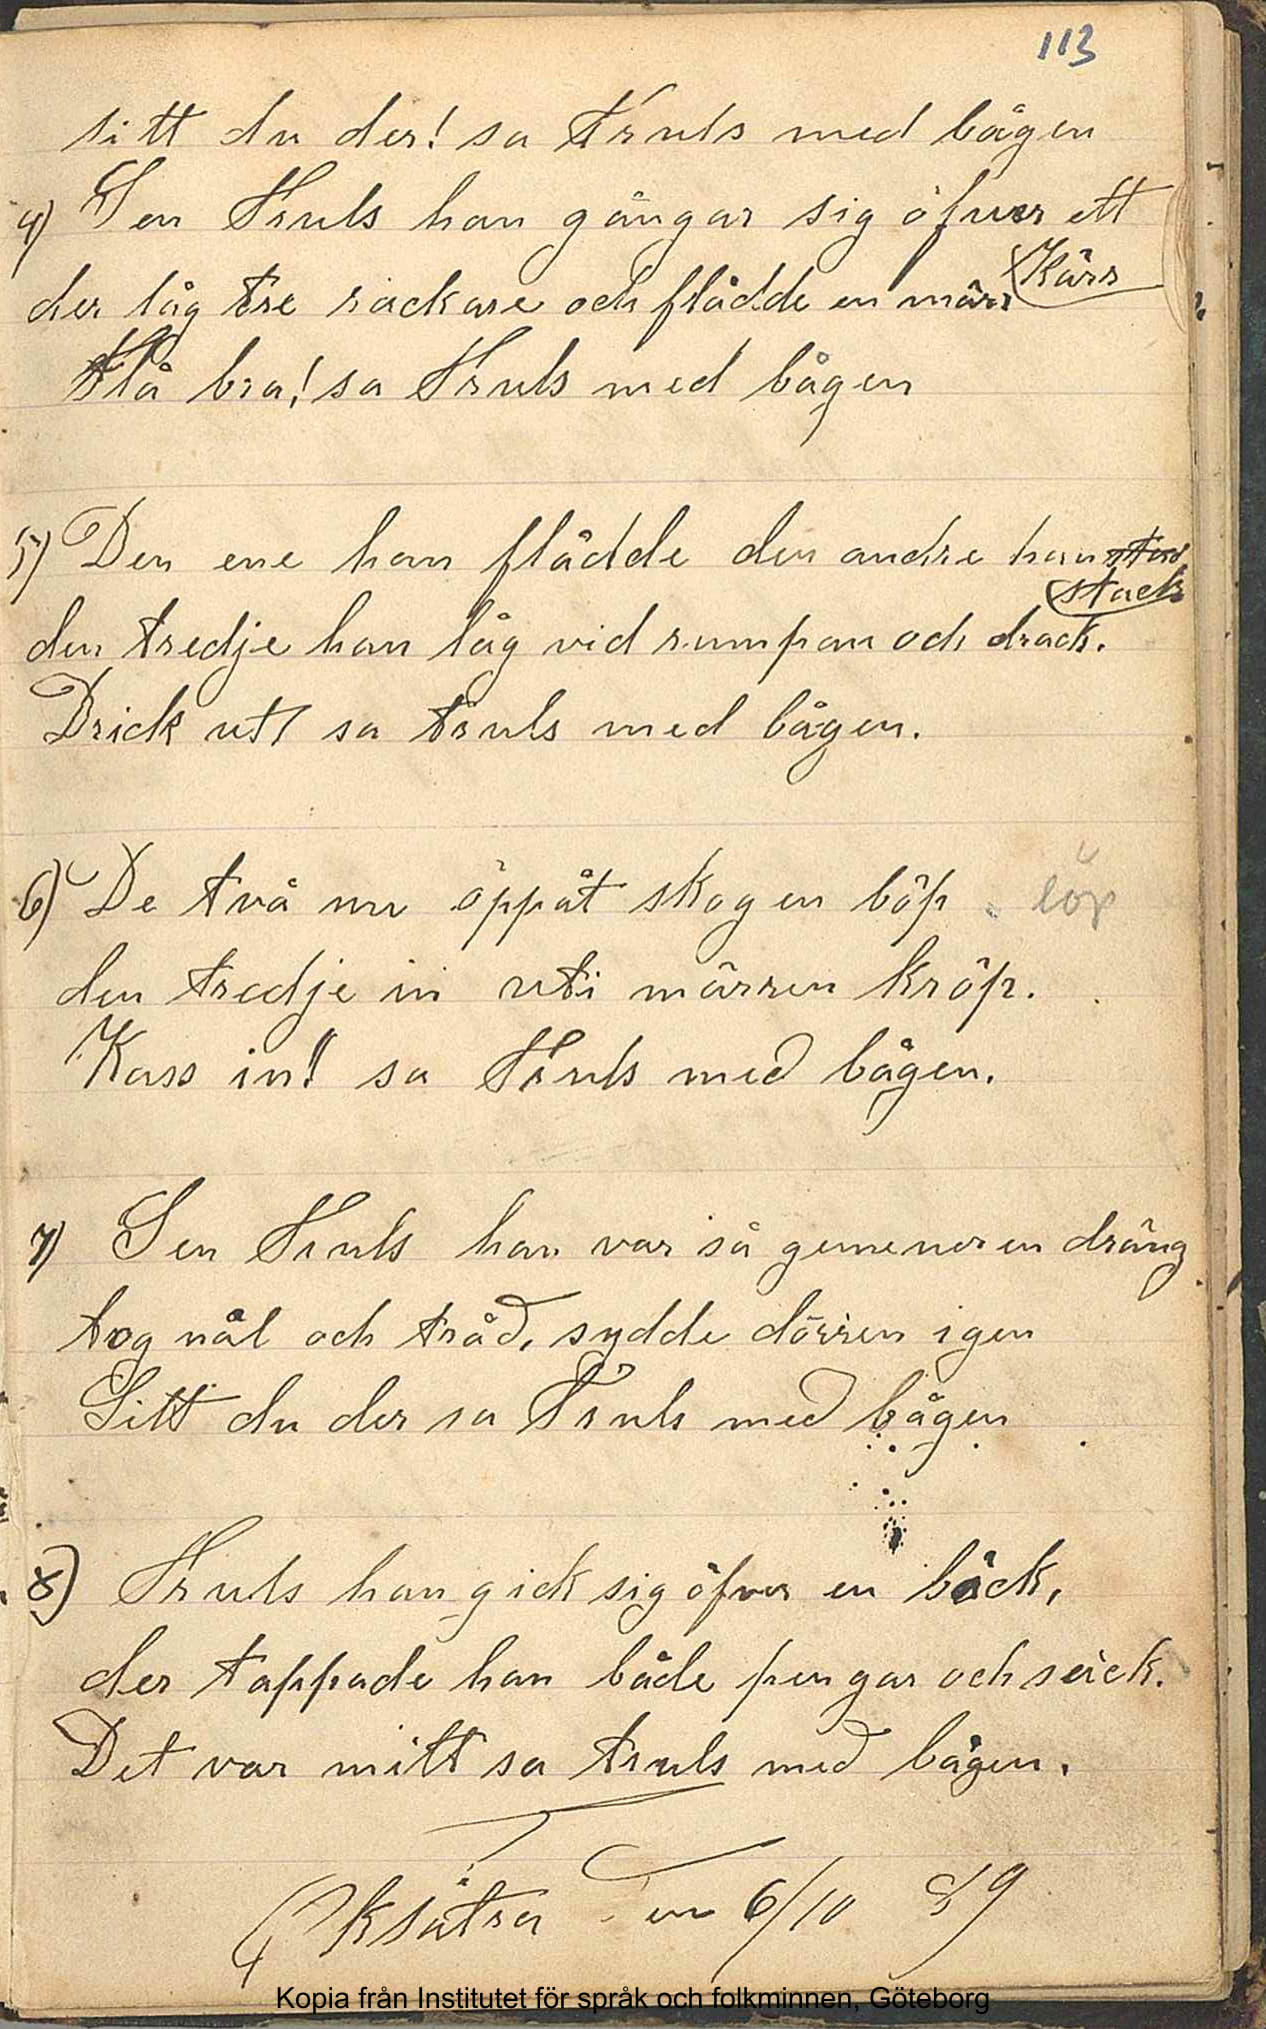 113
sitt du der! sa Truls med bågen
4) Sen Truls han gångar sig öfver ett
Kärr
der låg tre rackare och flådde en märr
Flå bra! sa Truls med bågen
5) Den ene han flådde den andre han
stack
den tredje han låg vid rumpan och drack.
Drick ut! sa truls med bågen.
6) De två nu öppåt skogen böp löp
den tredje in uti märren kröp.
Kass in! sa Truls med bågen.
7) Sen Truls han var så gemener en dräng
tog nål och tråd, sydde dörren igen
Sitt du der sa Truls med bågen
8) Truls han gick sig öfver en bäck,
der tappade han både pengar och säck.
Det var mitt sa truls med bågen.
Eksätra den 6/10 89
Kopia från Institutet för språk och folkminnen, Göteborg